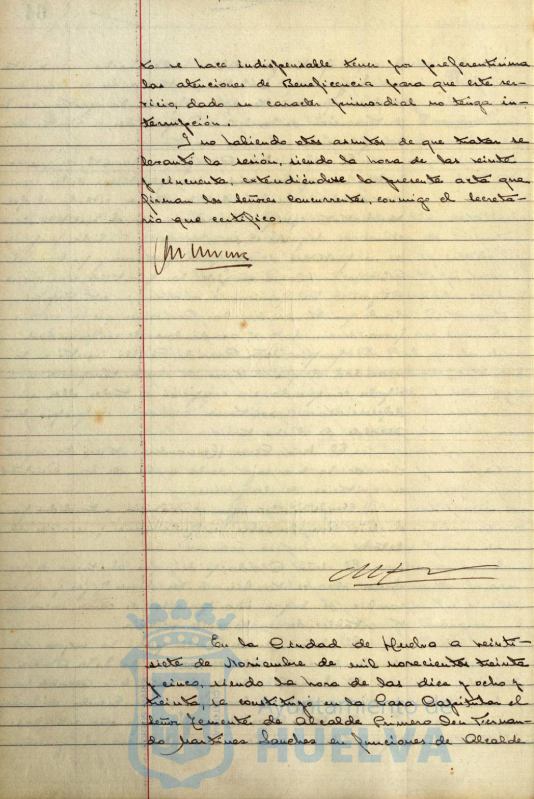 to se hace indispensable tener por preferentísima
las atenciones de Beneficencia para que este ser-
vicio, dado su caracter primordial no tenga in-
terrupción.
Y no habiendo otros asuntos de que tratar se
levantó la sesión, siendo la hora de las veinte
y cincuenta, extendiéndose la presente acta que
firman los Señores Concurrentes, conmigo el Secreta-
rio que certifico.
En la Ciudad de Huelva a veinti-
siete de Noviembre de mil novecientos treinta
y cinco, siendo la hora de las diez y ocho y
treinta, se constituyó en la Casa Capitular el
Señor Teniente de Alcalde Primero Don Fernan-
do Martinez Sanchez en funciones de Alcalde
Ayuntamiento de
HUELVA